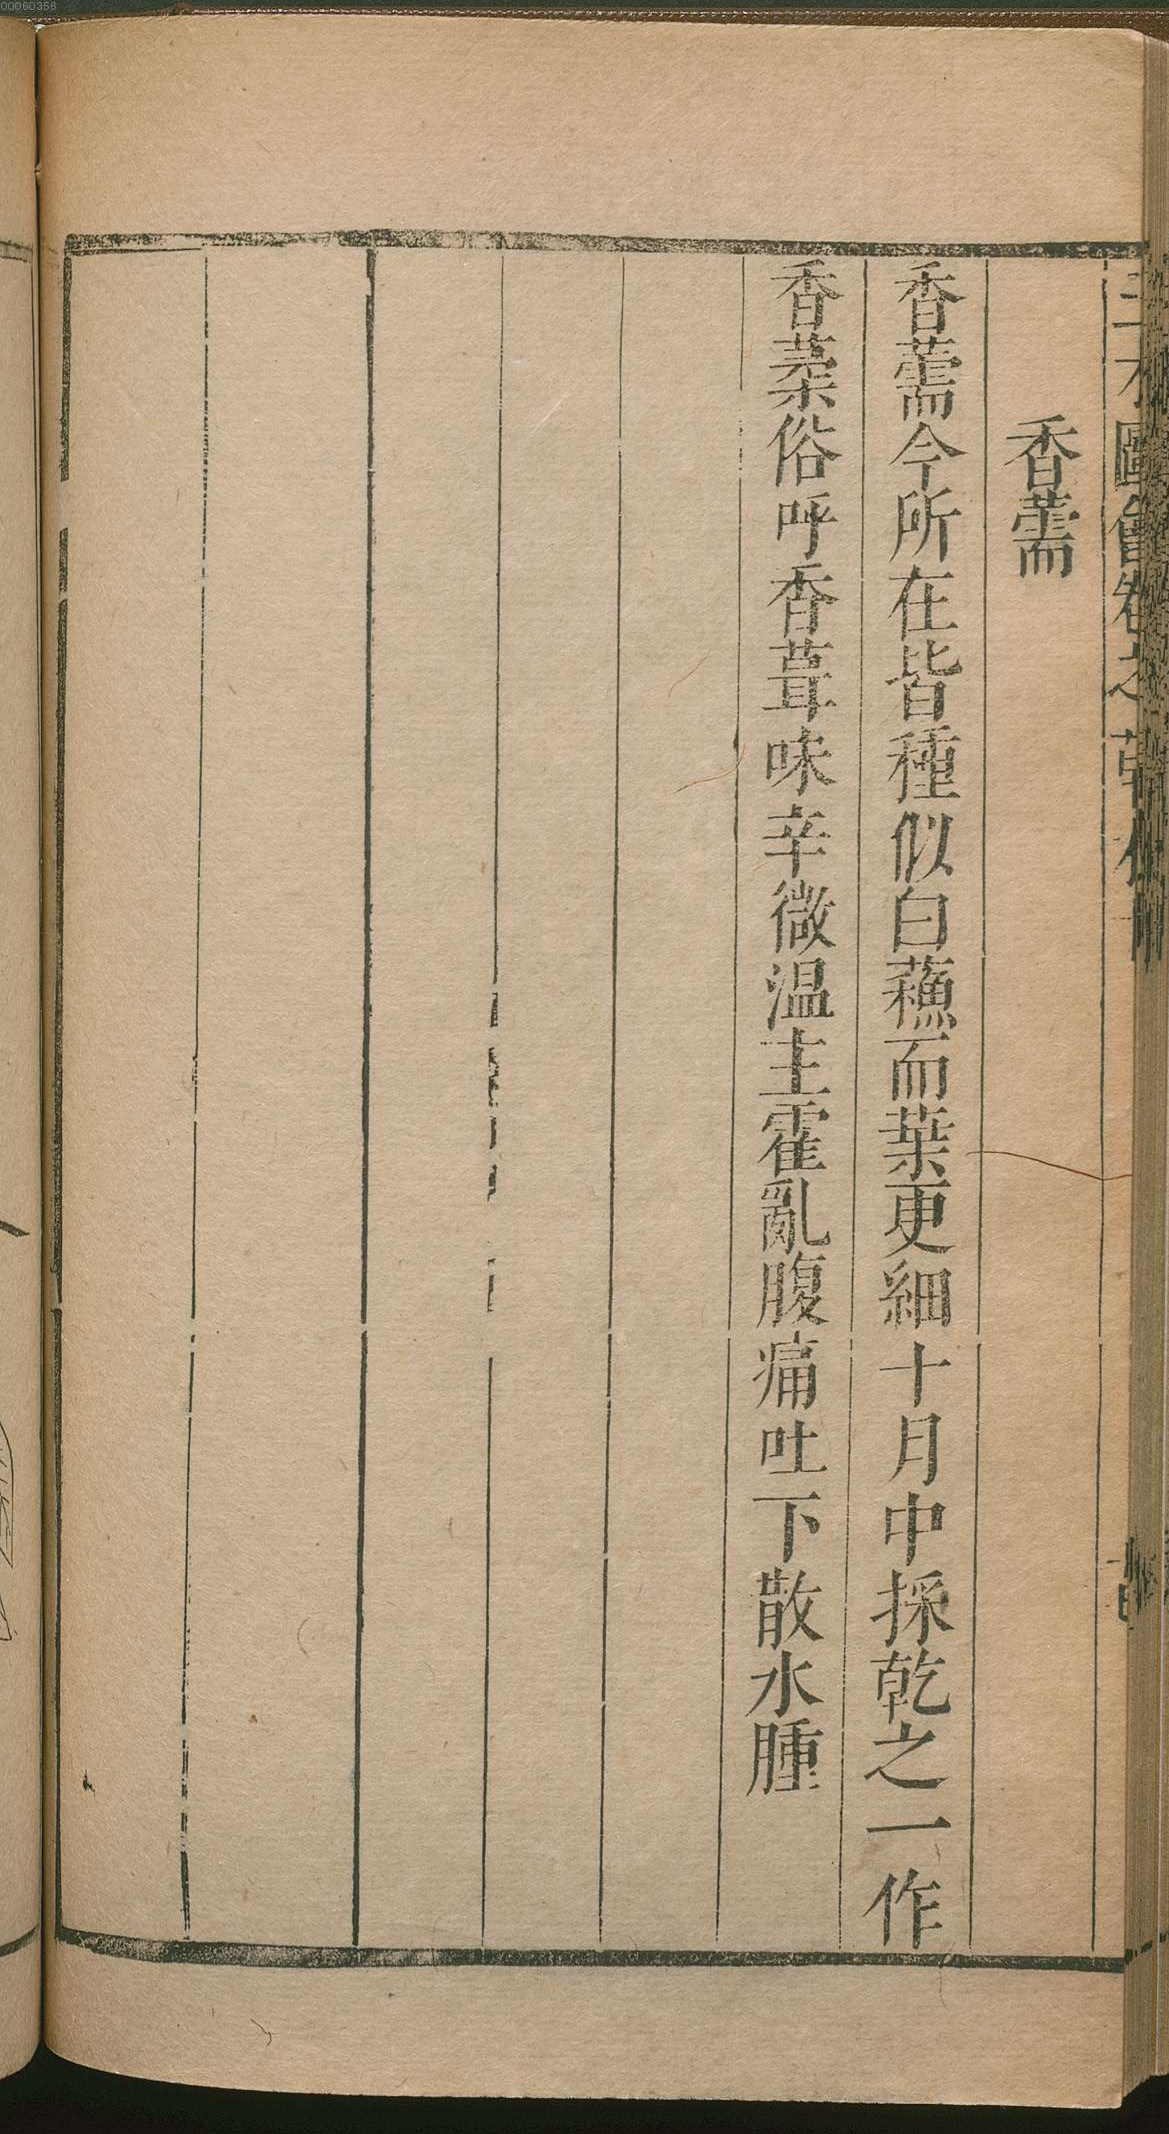 00060356
三才圖會卷之
香薷
香薷今所在皆種似白蘓而葉更細十月中採乾之一作
香葇俗呼香葺味辛微温主霍亂腹痛吐下散水腫